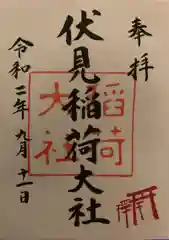 奉拝
伏見稲荷大社
稲荷
大社
令和二年九月十一日